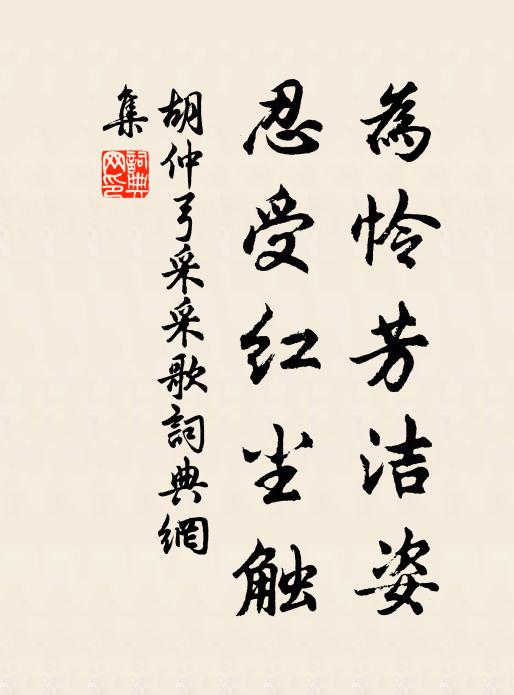 為怜芳洁姿
忍受红尘触
胡仲弓采采歌詞典網
集
詞典
网印